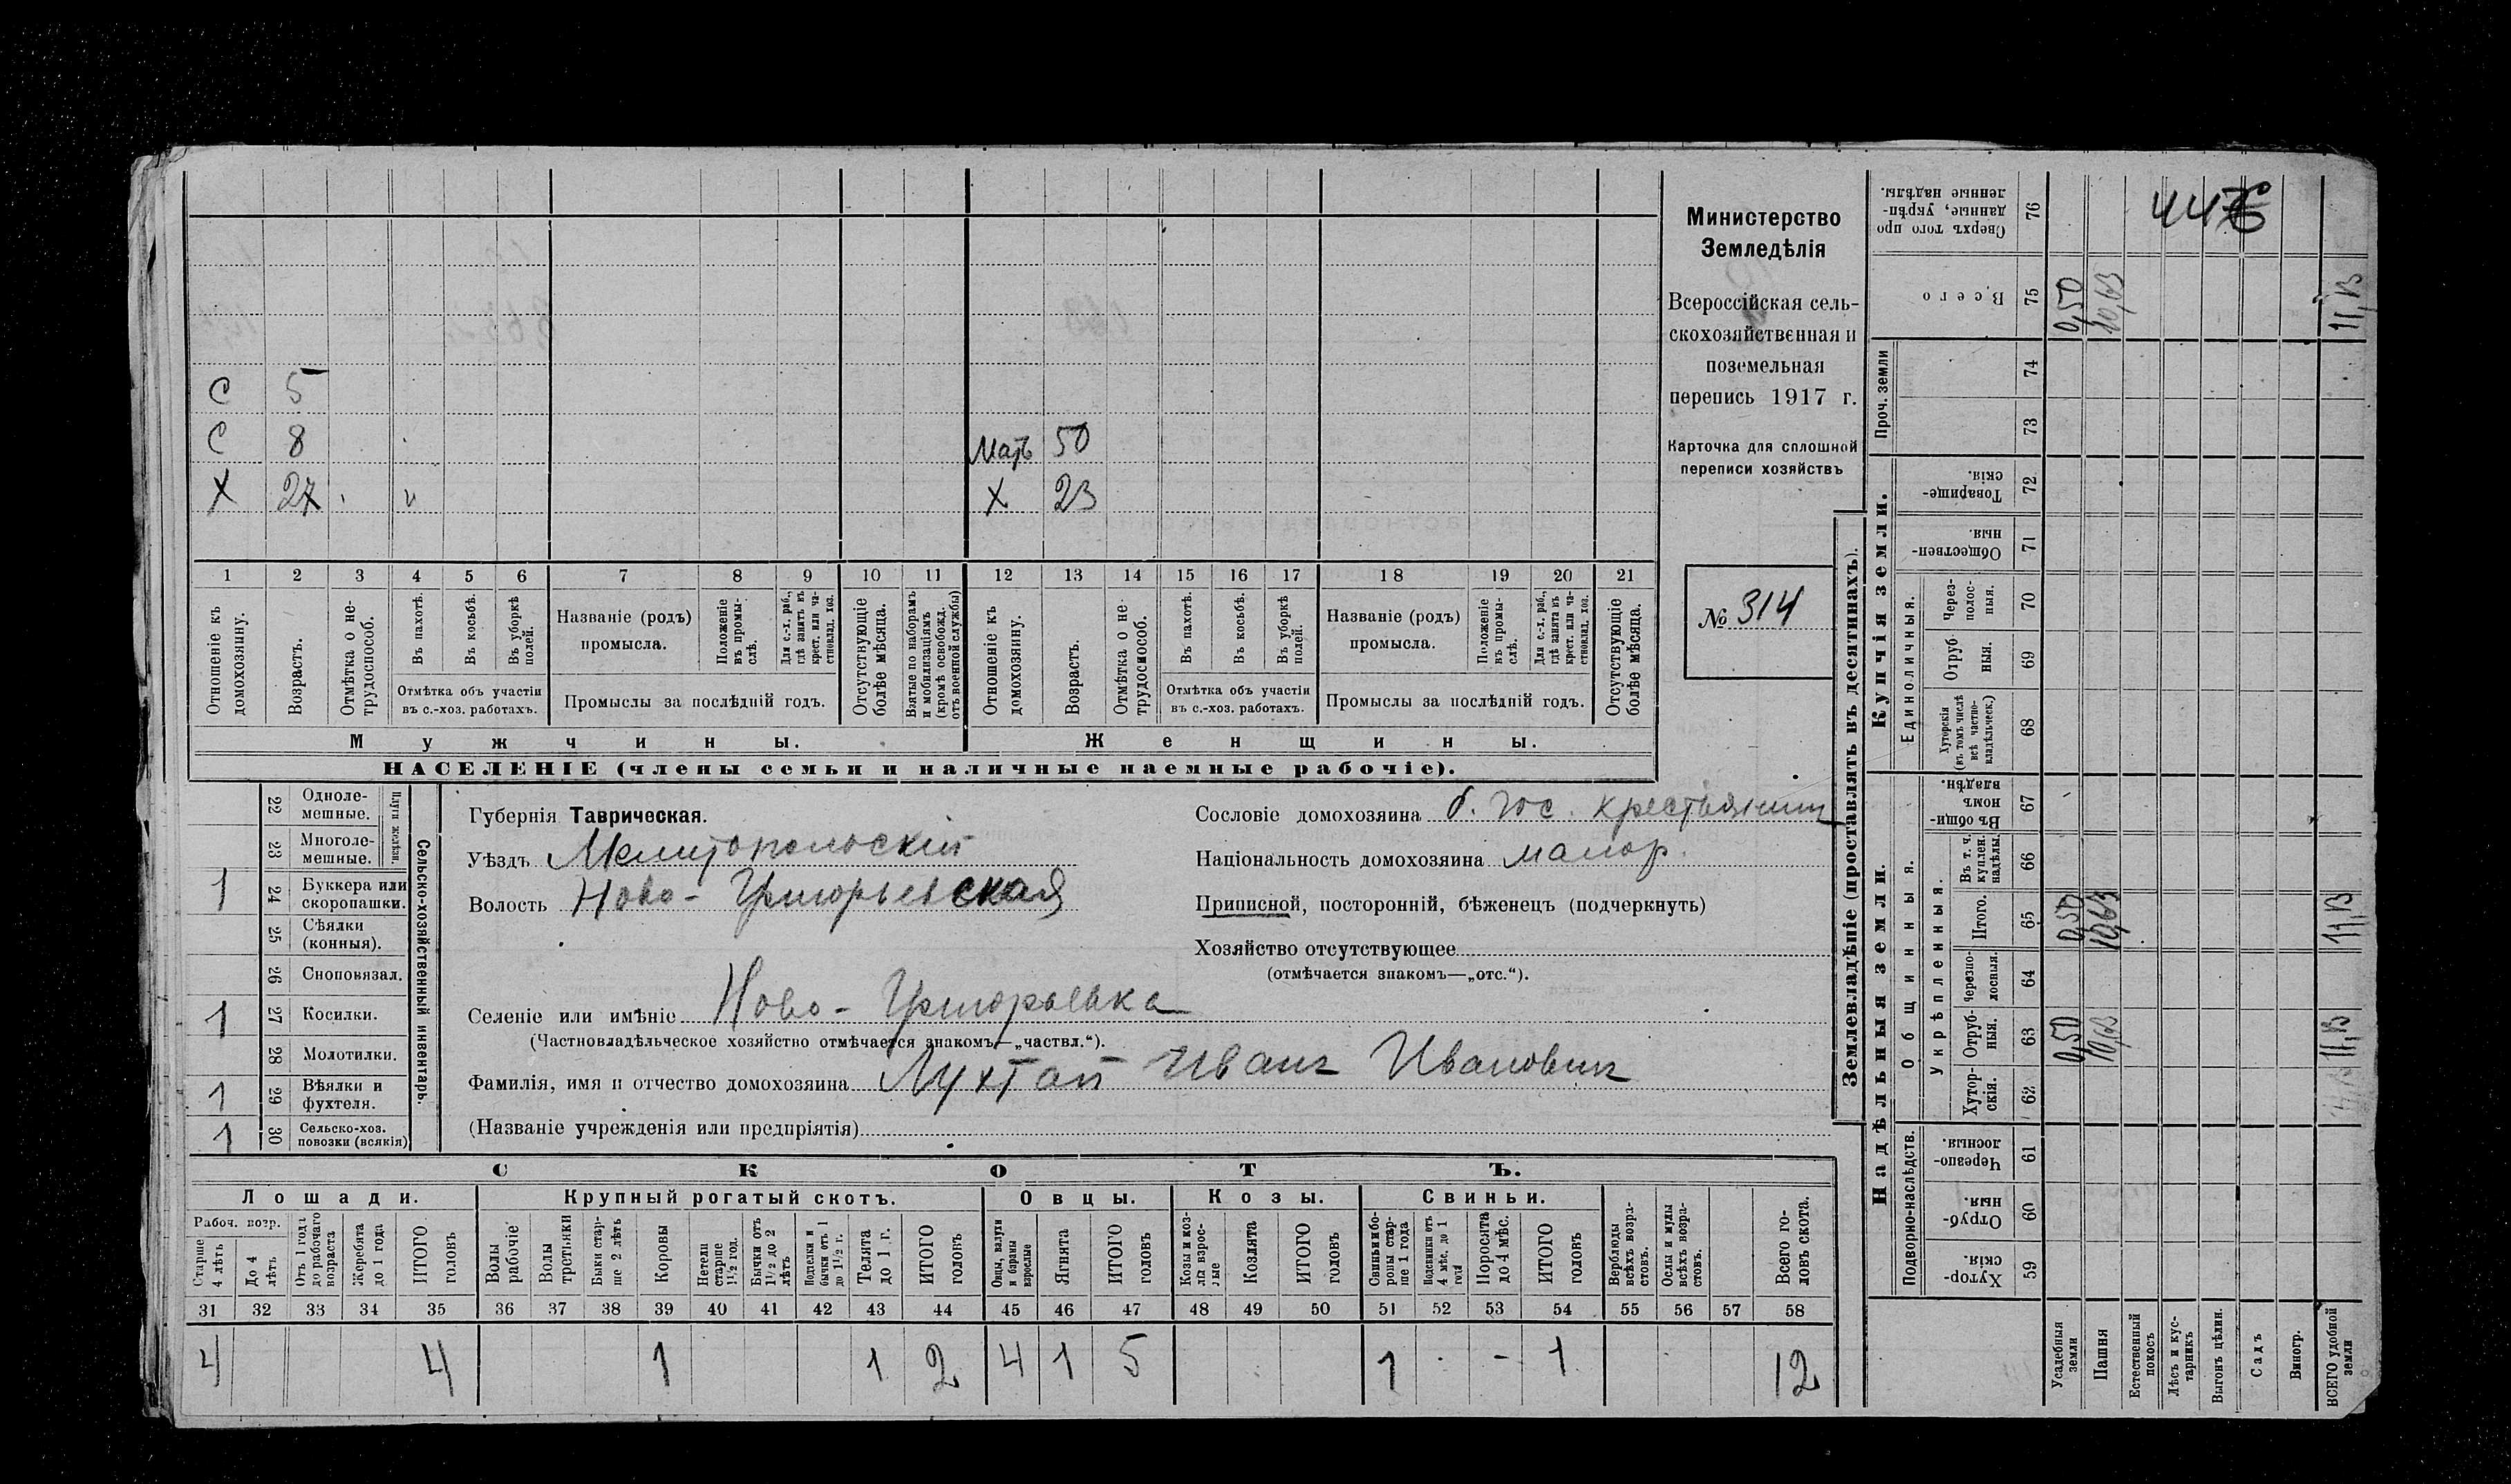 С 5
С 8 Мать 50
Х 27 Х 23
1 2 3 4 5 6 7 8 9 10 11 12 13 14 15 16 17 18 19 20 21
Отношеніе къ домохозяину.
Возрастъ.
Отмѣтка о не-трудоспособ.
Въ пахотѣ.
Въ косьбѣ.
Въ уборкѣ полей.
Отмѣтка объ участіи
въ с.-хоз. работахъ.
Названіе (родъ)
промысла.
Положеніе въ промы-слѣ.
Для с.-х. раб., гдѣ занятъ въ крест. или ча-стновлад. хоз.
Промыслы за послѣдній годъ.
Отсутствующіе болѣе мѣсяца.
Взятые по наборамъ и мобилизаціямъ (кромѣ освобожд. отъ военной службы)
Отношеніе къ домохозяину.
Возрастъ.
Отмѣтка о не трудоспособ.
Въ пахотѣ.
Въ косьбѣ.
Въ уборкѣ полей.
Отмѣтка объ участіи
въ с.-хоз. работахъ.
Названіе (родъ)
промысла.
Положеніе въ промы-слѣ.
Для с.-х. раб., гдѣ занята въ крест. или ча-стновлад. хоз.
Промыслы за послѣдній годъ.
Отсутствующіе болѣе мѣсяца.
Мужчины.
Женщины.
НАСЕЛЕНІЕ (члены семьи и наличные наемные рабочіе).
Министерство
Земледѣлія
Всероссійская сель-
скохозяйственная и
поземельная
перепись 1917 г.
Карточка для сплошной
переписи хозяйствъ
№ 314
Сельско-хозяйственный инвентарь.
Плуги желѣзн.
22 Одноле-мешные.
23 Многоле-мешные.
1 24 Буккера или скоропашки.
25 Сѣялки (конныя).
26 Сноповязал.
1 27 Косилки.
28 Молотилки.
1 29 Вѣялки и фухтеля.
1 30 Сельско-хоз. повозки (всякія)
Губернія Таврическая.
Уѣздъ Мелитопольскій
Волость Ново-Григорьевская
Сословіе домохозяина б. гос. крестьянинъ
Національность домохозяина малор.
Приписной, посторонній, бѣженецъ (подчеркнуть)
Хозяйство отсутствующее
(отмѣчается знакомъ—„отс.“).
Селеніе или имѣніе Ново-Григорьевка
(Частновладѣльческое хозяйство отмѣчается знакомъ—„частвл.“).
Фамилія, имя и отчество домохозяина Лухтай Иванъ Ивановичъ
(Названіе учрежденія или предпріятія)
СКОТЪ.
Лошади. Крупный рогатый скотъ. Овцы. Козы. Свиньи.
Рабоч. возр.
Старше 4 лѣтъ
До 4 лѣтъ
Отъ 1 года до рабочаго возраста
Жеребята до 1 года
ИТОГО головъ
Волы рабочіе
Волы третьяки
Быки стар-ше 2 лѣтъ
Коровы
Нетели старше 1½ год.
Бычки отъ 1½ до 2 лѣтъ
Подтелки и бычки отъ 1 до 1½ г.
Телята до 1 г.
ИТОГО головъ
Овцы, валухи и бараны взрослые
Ягнята
ИТОГО головъ
Козы и коз-лы взрос-лые
Козлята
ИТОГО головъ
Свиньи и бо-ровы стар-ше 1 года
Подсвинки отъ 4 мѣс. до 1 года
Поросята до 4 мѣс.
ИТОГО головъ
Верблюды всѣхъ возра-стовъ.
Ослы и мулы всѣхъ возра-стовъ.
Всего го-ловъ скота.
31 32 33 34 35 36 37 38 39 40 41 42 43 44 45 46 47 48 49 50 51 52 53 54 55 56 57 58
4 4 1 1 2 4 1 5 1 - 1 12
Землевладѣніе (проставлять въ десятинахъ).
Купчія земли.
Надѣльныя земли.
Сверхъ того про данные, укрѣп-ленные надѣлы. 76
Всего 75 0,50 10,63 11,13
Проч. земли 74 73
Товарище-скія. 72
Обществен-ныя. 71
Единоличныя.
Через-полос-ныя. 70
Отруб ныя. 69
Хуторскія (въ томъ числѣ всѣ частно-владѣльческ.) 68
Общинныя.
Въ общи-номъ владѣн. 67
Укрѣпленныя.
Въ т. ч. куплен. надѣлы. 66
Итого. 65 0,50 10,63 11,13
Черезпо-лосныя. 64
Отруб-ныя. 63 0,50 10,63 11,13
Хутор-скія. 62
Подворно-наслѣдств.
Черезпо-лосныя. 61
Отруб-ныя. 60
Хутор-скія. 59
Усадебныя земли
Пашня
Естественный покосъ
Лѣсъ и кус-тарникъ
Выгонъ цѣлин.
Садъ
Виногр.
ВСЕГО удобной земли